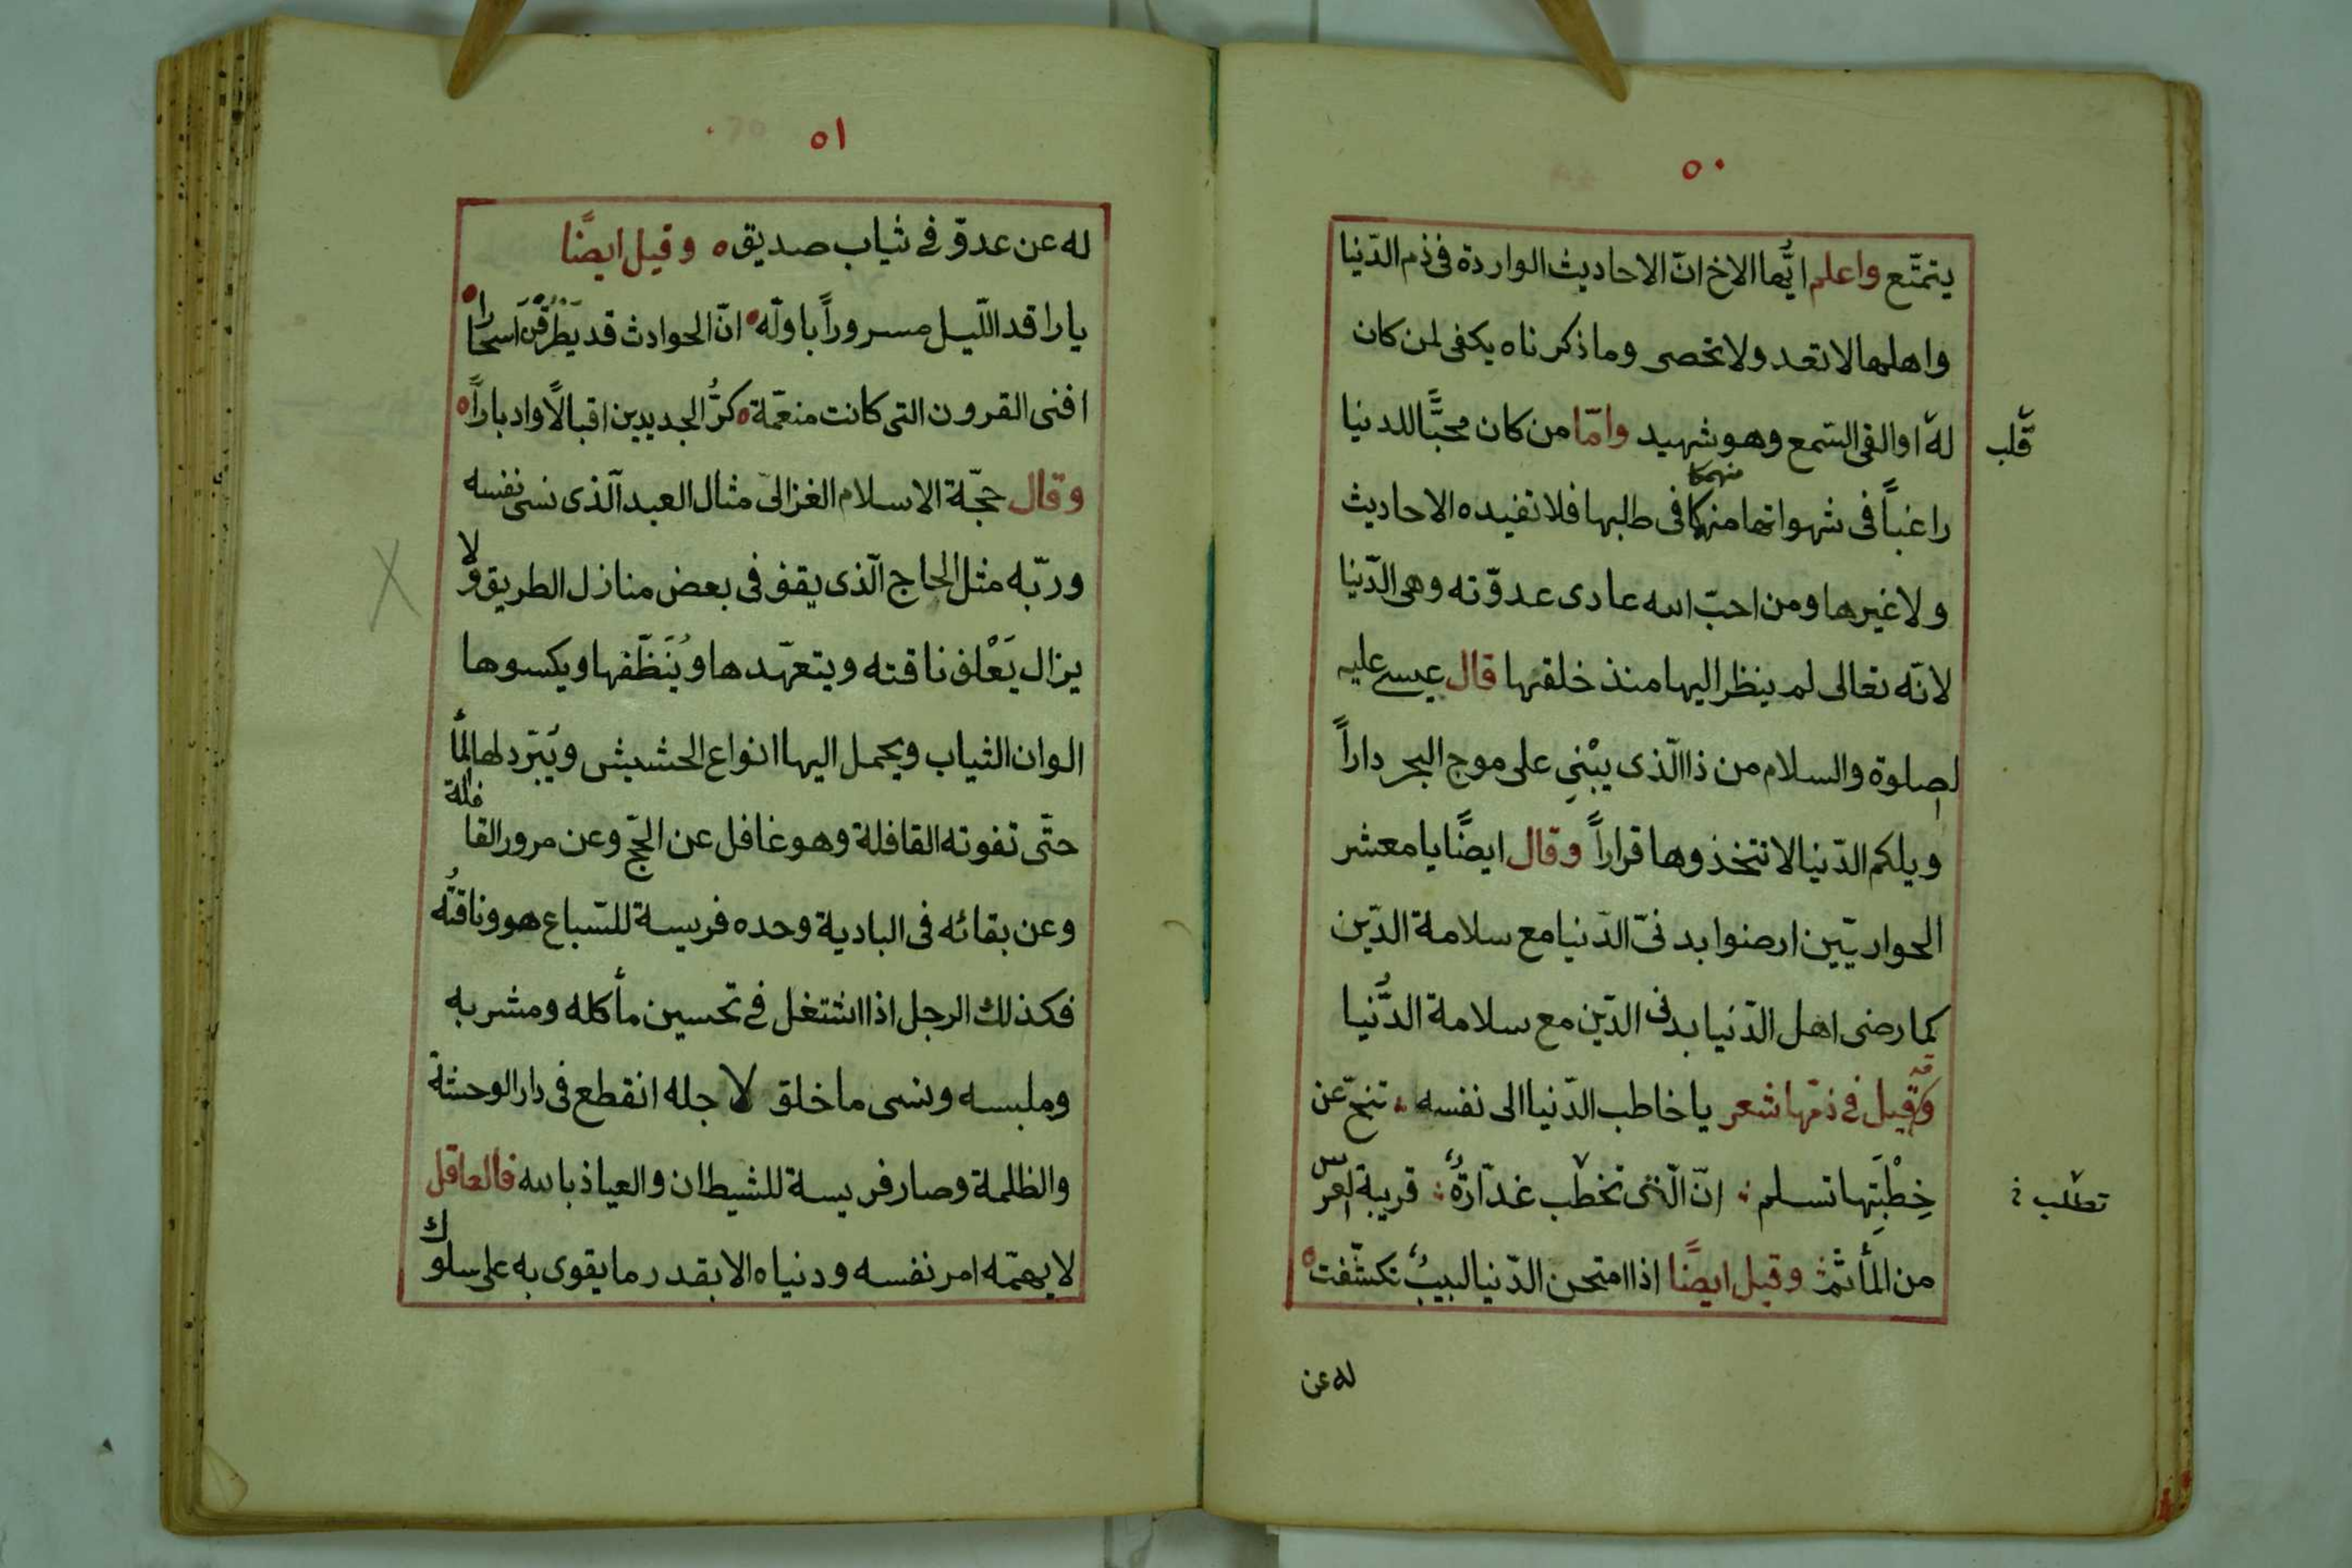 ٥٠
يتمتّع واعلم ايُّها الاخ انّ الاحاديث الواردة فى ذم الدّنيا
واهلها لا تعد ولا تحصى وما ذكرناه يكفى لمن كان
له اوالقى السّمع وهو شهيد وامّا من كان محبًّا للدنيا
قلب
راغباً فى شهواتها منهمكا فى طلبها فلا تفيده الاحاديث
منهمكا
ولا غيرها ومن احبّ الله عادى عدوّته وهى الدّنيا
لانّه تعالى لم ينظر اليها منذ خلقها قال عيسى عليه
لصلوة والسلام من ذا الّذى يبْنِى على موج البحر داراً
ويلكم الدّنيا لا تتخذوها قراراً وقال ايضًا يا معشر
الحواريّين ارضوا بدنىّ الدّنيا مع سلامة الدّين
كما رضى اهل الدّنيا بدنى الدّين مع سلامة الدُّنيا
وقيل فى ذمّها شعر يا خاطب الدّنيا الى نفسه تنحّ عن
خِطْبَتِها تسلم انّ الّتى تخطب غدّارةٌ قريبة العرس
تطلب
من المأتم وقيل ايضًا اذا امتحن الدّنيا لبيبٌ تكشّفت
له عن
٥١
له عن عدوّ فى ثياب صديق وقيل ايضًا
يا راقد اللّيل مسروراً باوّله انّ الحوادث قد يَطْرُقْنَ اسحارا
افنى القرون التى كانت منعّمة كرُّ الجديدين اقبالًا وادباراً
وقال حجّة الاسلام الغزالىّ مثال العبد الّذى نسى نفسه
وربّه مثل الحاج الّذى يقف فى بعض منازل الطريق ولا
يزال يَعْلف ناقته ويتعهّدها ويُنَظّفها ويكسوها
الوان الثياب ويحمل اليها انواع الحشيش ويُبَرّد لها المأ
حتّى تفوته القافلة وهو غافل عن الحجّ وعن مرور القافلة
وعن بقائه فى البادية وحده فريسة للسّباع هو وناقتُه
فكذلك الرجل اذا اشتغل فى تحسين مأكله ومشربه
وملبسه ونسى ما خلق لاجله انقطع فى دار الوحشة
والظلمة وصار فريسة للشيطان والعياذ بالله فالعاقل
لا يهمّه امر نفسه ودنياه الا بقدر ما يقوى به على سلوك